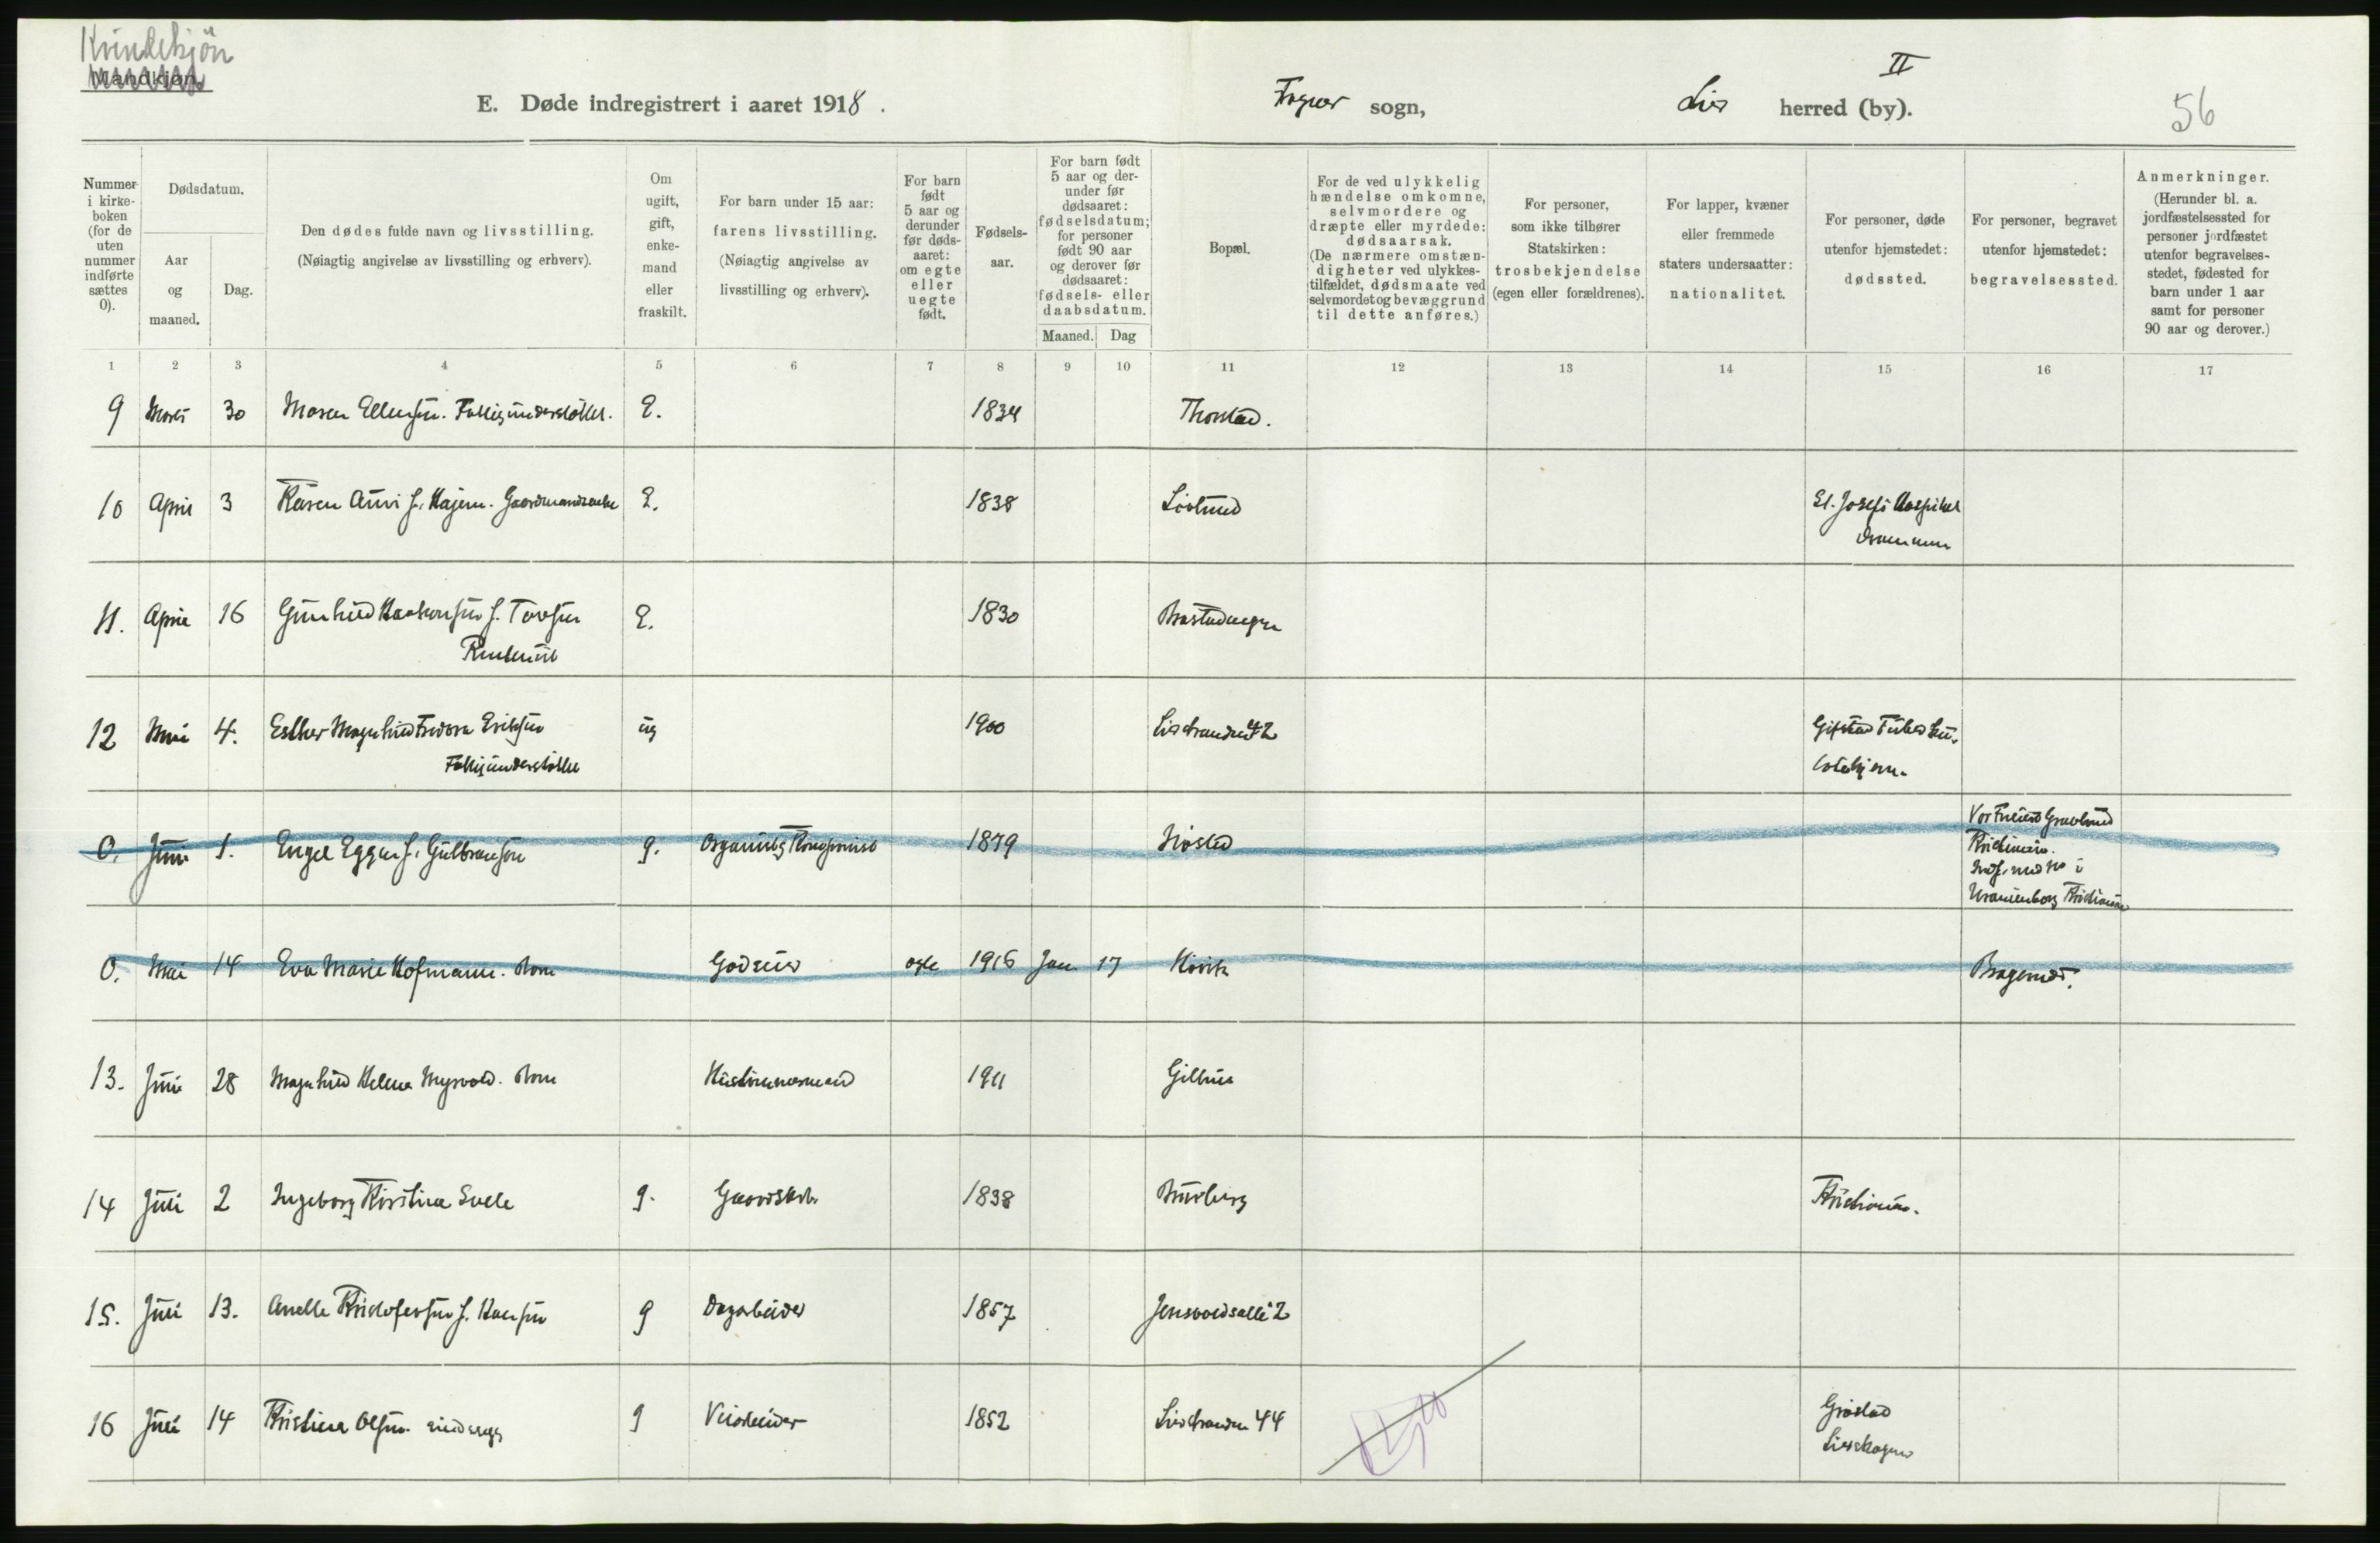 Kvindekjön
Mandkjøn.
II
E. Døde indregistrert i aaret 1918.
sogn,
Lier herred (by).
56
Nummer i kirkeboken (for de uten nummer indførte sættes 0).
Dødsdatum.
Aar og maaned.
Dag.
Den dødes fulde navn og livsstilling.
(Nøiagtig angivelse av livsstilling og erhverv).
Om ugift, gift, enkemand eller fraskilt.
For barn under 15 aar: farens livsstilling.
(Nøiagtig angivelse av livsstilling og erhverv).
For barn født 5 aar og derunder før dødsaaret: om egte eller uegte født.
Fødselsaar.
For barn født 5 aar og derunder før dødsaaret: fødselsdatum; for personer født 90 aar og derover før dødsaaret: fødsels- eller daabsdatum.
Maaned.
Dag
Bopæl.
For de ved ulykkelig hændelse omkomne, selvmordere og dræpte eller myrdede: dødsaarsak.
(De nærmere omstændigheter ved ulykkestilfældet, dødsmaate ved selvmordet og bevæggrund til dette anføres.)
For personer, som ikke tilhører Statskirken: trosbekjendelse (egen eller forældrenes).
For lapper, kvæner eller fremmede staters undersaatter: nationalitet.
For personer, døde utenfor hjemstedet: dødssted.
For personer, begravet utenfor hjemstedet: begravelsessted.
Anmerkninger.
(Herunder bl. a. jordfæstelsessted for personer jordfæstet utenfor begravelsesstedet, fødested for barn under 1 aar samt for personer 90 aar og derover.)
1 2 3 4 5 6 7 8 9 10 11 12 13 14 15 16 17
9 Marts 30 Maren Ellensen. Fattigunderstöttet. E. 1834 Thorstad.
10 April 3 Karen Anni f. Hajem. Gaardmandsenke E. 1838 St. Josefs Hospital
Drammen
11. April 16 Gunhild Haakonsen f. E. 1830
12 Mai 4. Esther Magnhild Eriksen ug 1900 Lierstranden 42
Fattigunderstöttet
0. Juni 1. Engel Eggen f. Gulbransen g. 1879 Vor Frelsers Gravlund
Kristiania.
Uranienborg Kristiania
0. Mai 14 Eva Marie Hofmann. Barn Godseier egte 1916 Jan. 17 Bragernæs.
13. Juni 28 Magnhild Helene Myrvold. Barn 1911 Gilhus
14 Juli 2 Ingeborg Kirstine g. Gaardbr. 1838 Kristiania.
15. Juli 13. Anette Kristofersen f. Hansen g Dagarbeider 1857 Jensvoldsalle 2
16 Juli 14 Kristine Olsen. g Veiarbeider 1852 Lierstranden 44
Lierskogen